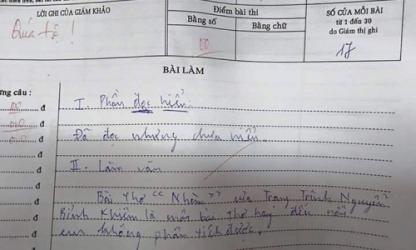 LỜI GHI CỦA GIÁM KHẢO
Quá tệ!
Điểm bài thi
Bằng số
Bằng chữ
SỐ CỦA MỖI BÀI
từ 1 đến 30
do Giám thị ghi
17
BÀI LÀM
đ
I. Phần đọc hiểu.
đ
đ Đã đọc nhưng chưa hiểu
đ
đ II. Làm văn
đ
đ Bài thơ "Nhàn" của Trạng Trình Nguyễn
đ Bỉnh Khiêm là một bài thơ hay đến nỗi
em không phân tích được.